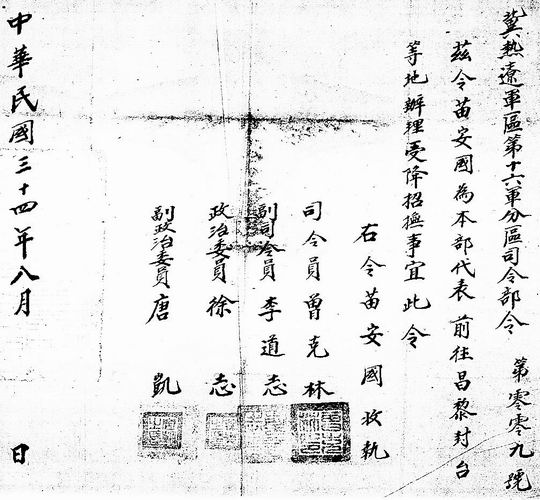 冀熱遼軍區第十六軍分區司令部令 第零零九號
茲令苗安國為本部代表前往昌黎封台
等地辦理受降招撫事宜此令
右令苗安國收執
司令員曾克林
副司令員李道志
政治委員徐志
副政治委員唐凱
中華民國三十四年八月 日